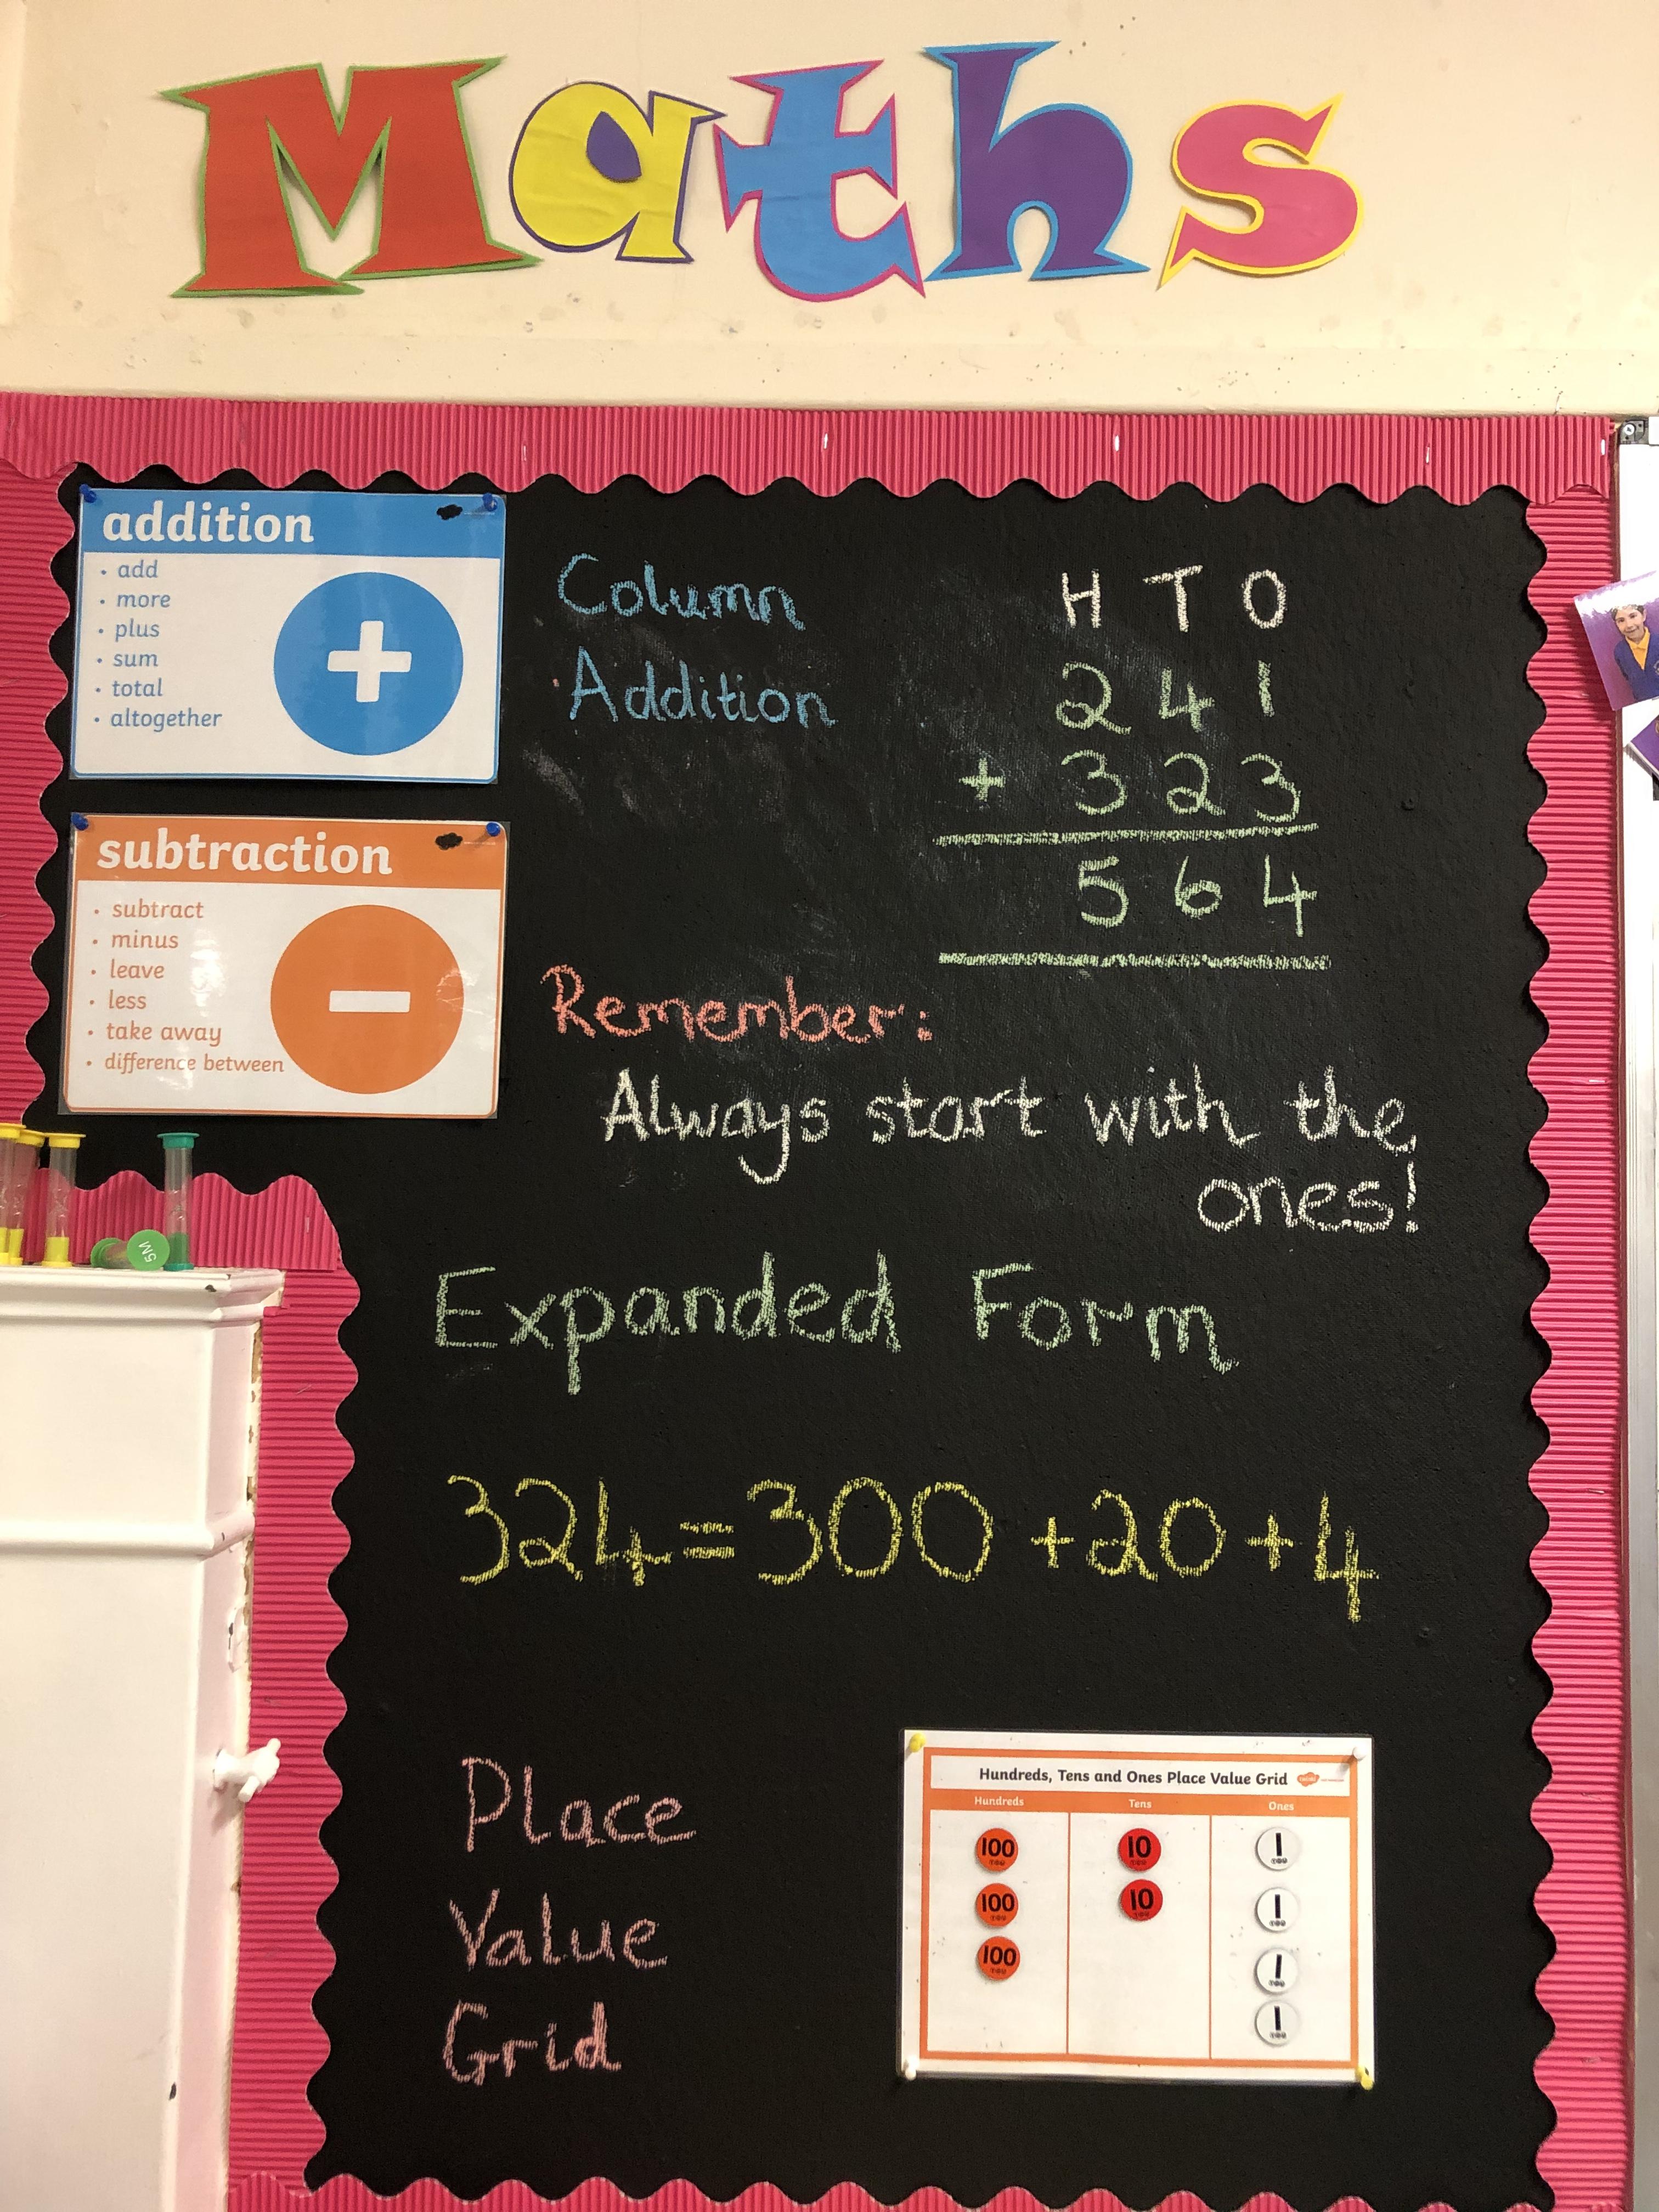 Maths
addition
• add
• more
• plus
• sum
• total
• altogether
+
subtraction
• subtract
• minus
• leave
• less
• take away
• difference between
−
Column
Addition
H T O
2 4 1
+ 3 2 3
5 6 4
Remember:
Always start with the
ones!
5M
Expanded Form
324=300+20+4
Place
Value
Grid
Hundreds, Tens and Ones Place Value Grid
Hundreds Tens Ones
100 10 1
100 10 1
100 1
1